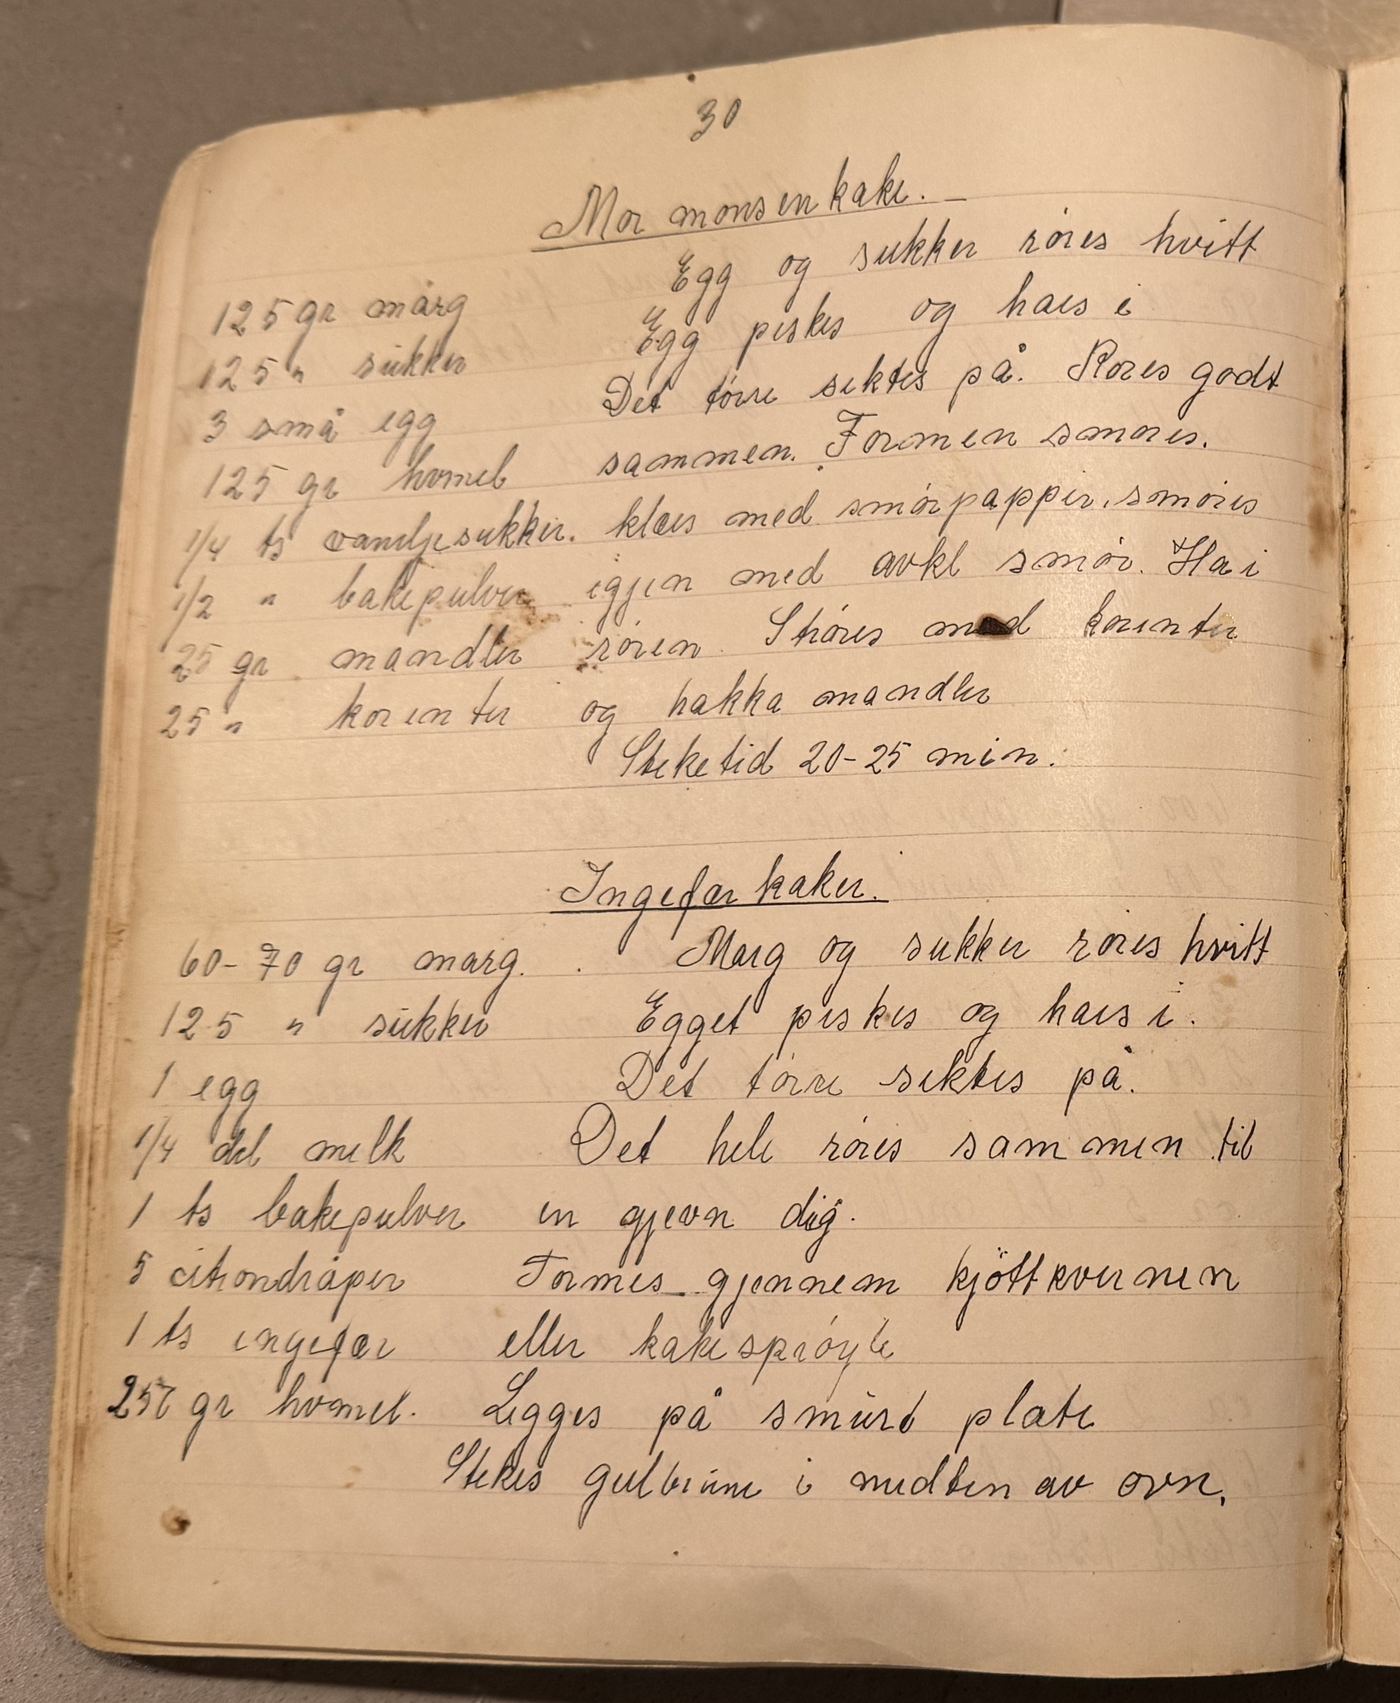 30
Mor monsen kake.
Egg og sukker röres hvitt
125 gr marg
Egg piskes og haes i
125 " sukker
Det törre siktes på. Röres godt
3 små egg
sammen. Formen smöres.
125 gr hvmel
klæs med smörpappir. smöres
1/4 ts vaniljesukker.
igjen med avkl smör. Ha i
1/2 " bakepulver
rören. Ströes med korinter
25 gr mandler
og hakka mandler
25 " korinter
Steketid 20-25 min.
Ingefær kaker.
60-70 gr marg. Marg og sukker röres hvitt
125 " sukker Egget piskes og haes i.
1 egg Det törre siktes på.
1/4 del melk Det hele röres sammen til
1 ts bakepulver en gjevn dig.
5 citrondråper Formes gjennem kjöttkvernen
1 ts ingefær eller kakespröyte
250 gr hvmel. Legges på smurt plate
Stekes gulbrune i midten av ovn.